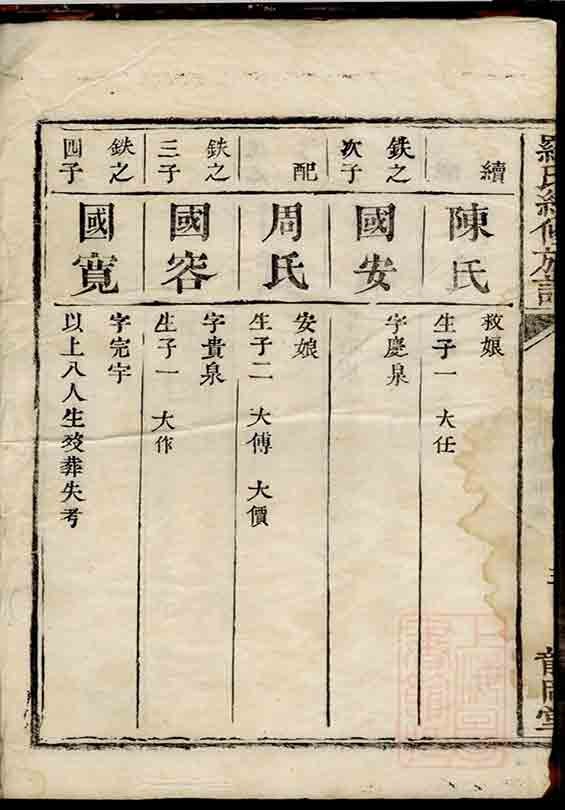 續
陳氏
赦娘
生子一 大任
鉄之
次子
國安
字慶泉
配
周氏
安娘
生子二 大傅 大價
鉄之
三子
國容
字貴泉
生子一 大作
鉄之
四子
國寬
字完宇
以上八人生歿葬失考